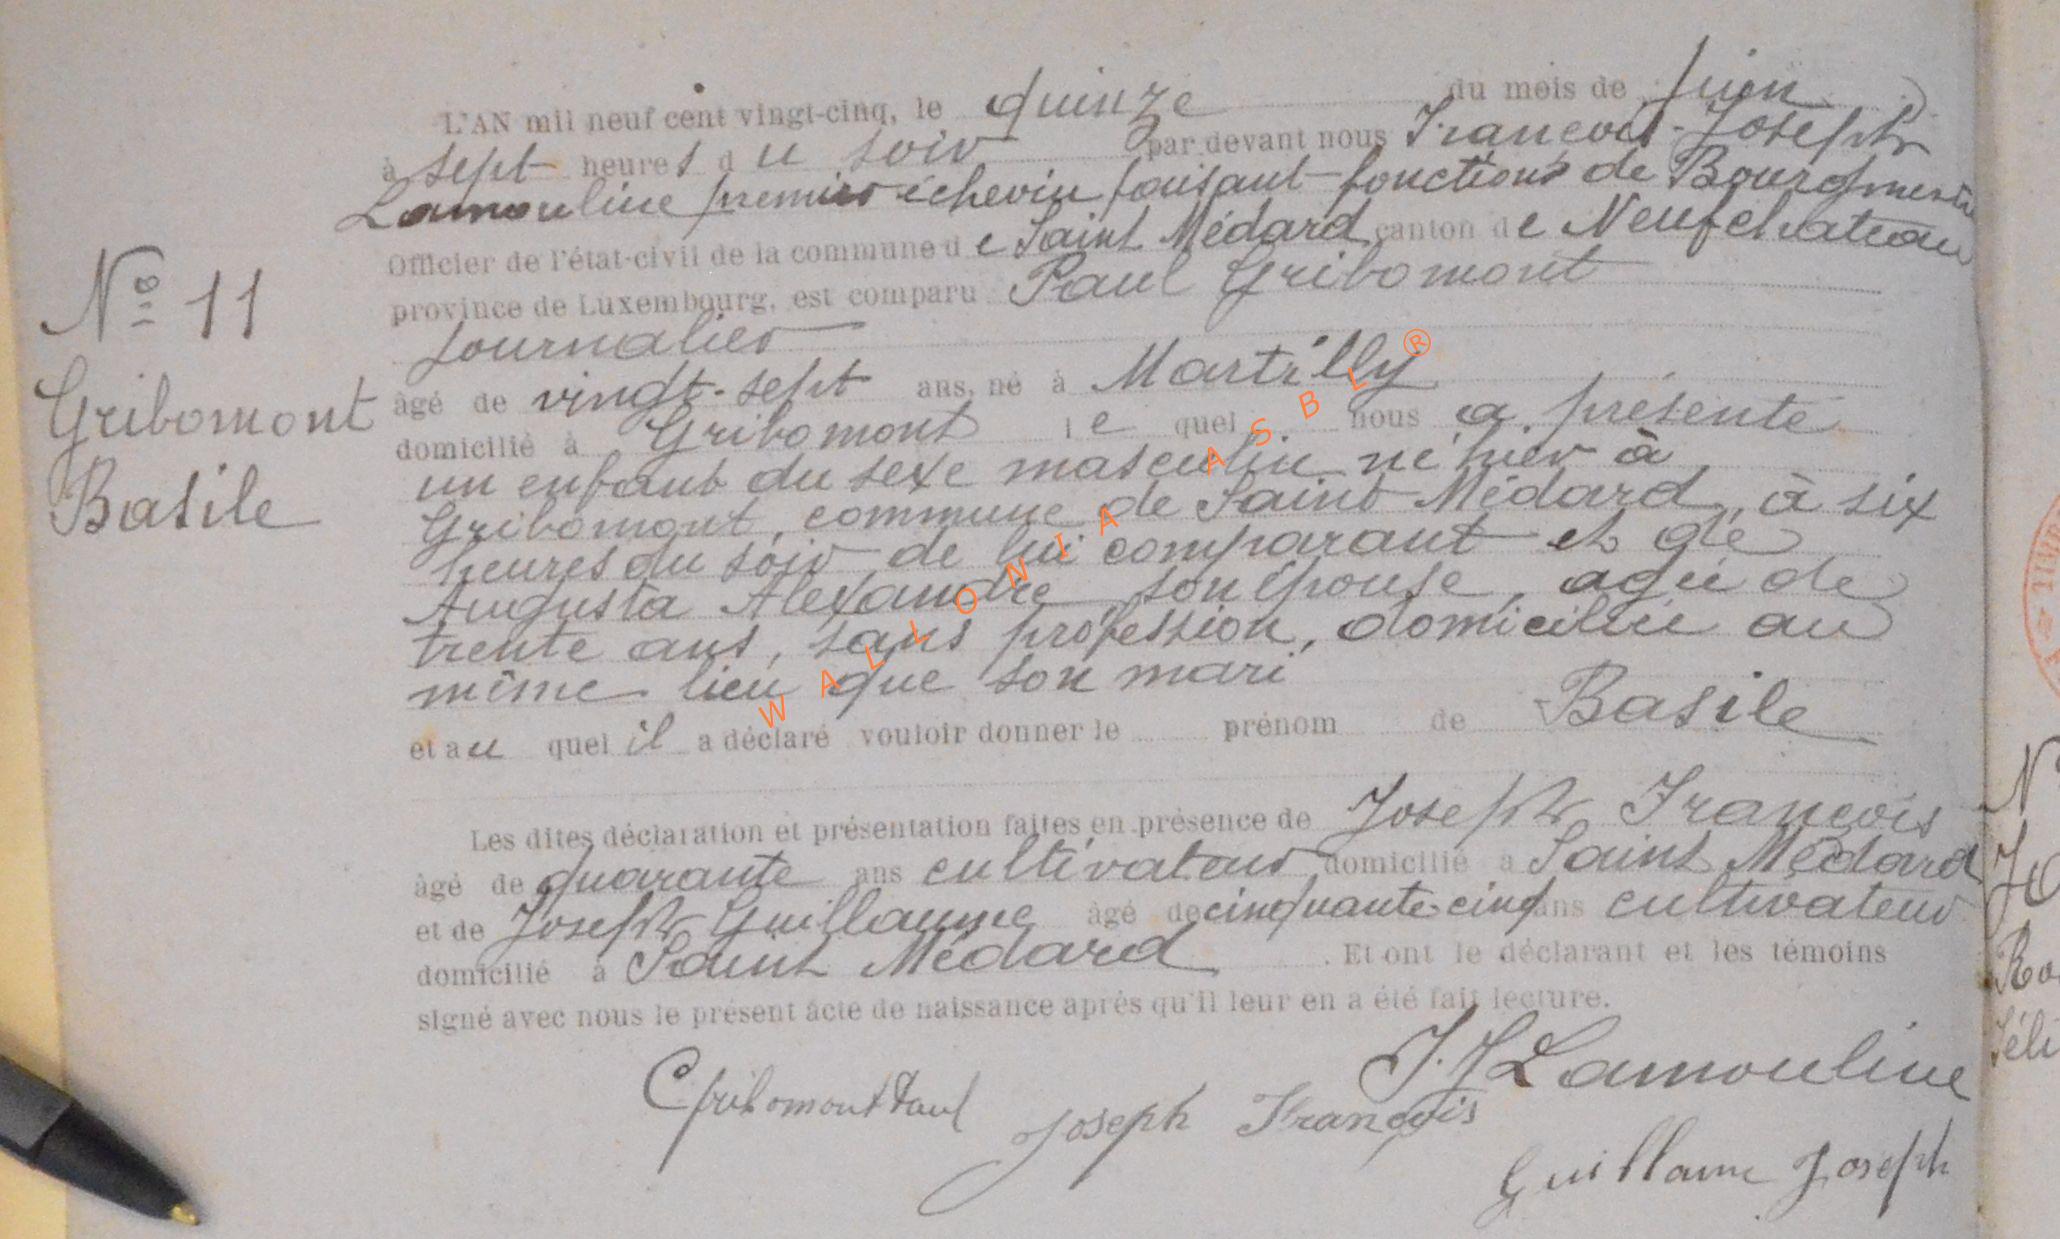 L'AN mil neuf cent vingt-cinq, le quinze du mois de juin
à sept heures du soir par devant nous François-Joseph
Lamouline premier échevin faisant fonctions de Bourgmestre
Officier de l'état-civil de la commune de Saint Médard canton de Neufchateau
province de Luxembourg, est comparu Paul Gribomont
journalier
N° 11
Gribomont
Basile
âgé de vingt-sept ans, né à Martilly
domicilié à Gribomont le quel nous a présenté
un enfant du sexe masculin né hier à
Gribomont, commune de Saint Médard, à six
heures du soir de lui comparant et de
Augusta Alexandre son épouse, agée de
trente ans, sans profession, domiciliée au
même lieu que son mari
et au quel il a déclaré vouloir donner le prénom de Basile
Les dites déclaration et présentation faites en présence de Joseph François
âgé de quarante ans cultivateur domicilié à Saint Médard
et de Joseph Guillaume âgé de cinquante-cinq ans cultivateur
domicilié à Saint Médard. Et ont le déclarant et les témoins
signé avec nous le présent acte de naissance après qu'il leur en a été fait lecture.
J. J Lamouline
Gribomont Paul
Joseph François
Guillaume Joseph
WALLONIA ASBL ®